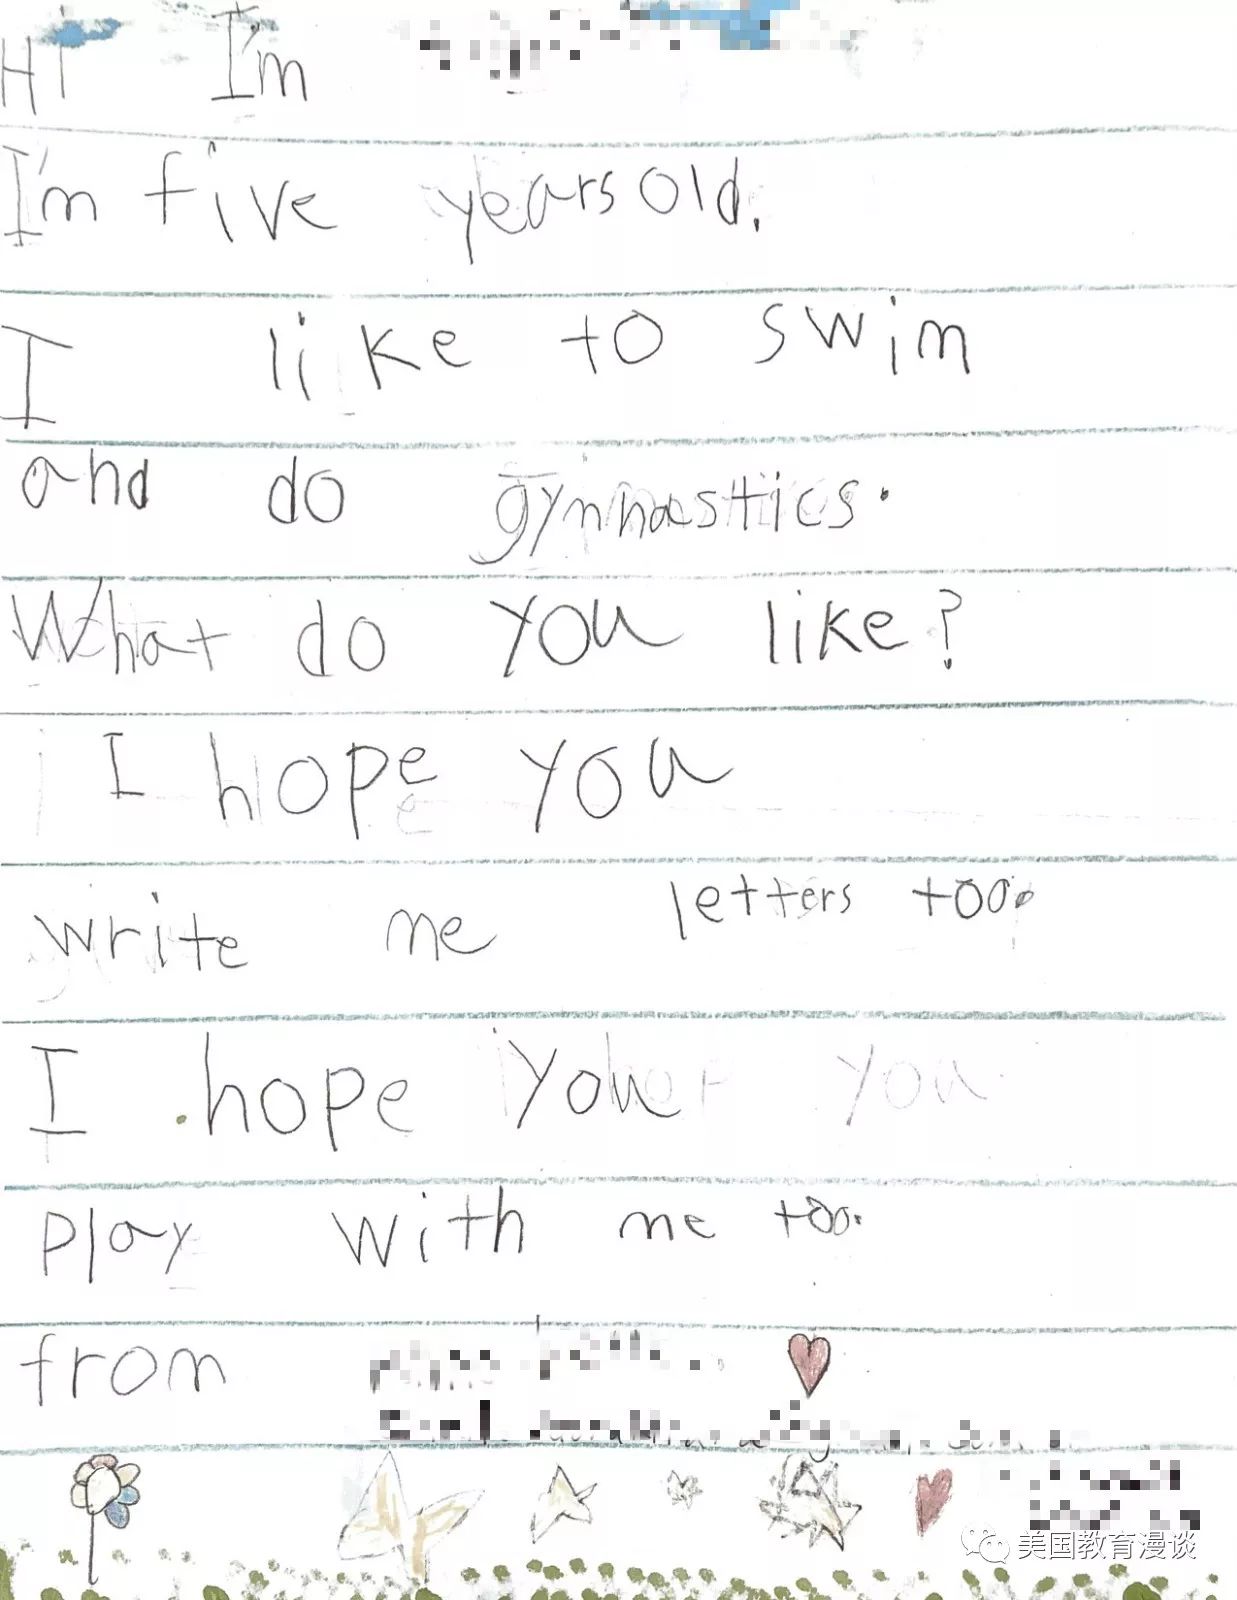 Hi I'm
I'm five years old.
I like to swim
and do gymnastics.
What do you like?
I hope you
write me letters too.
I hope you
play with me too.
from
美国教育漫谈